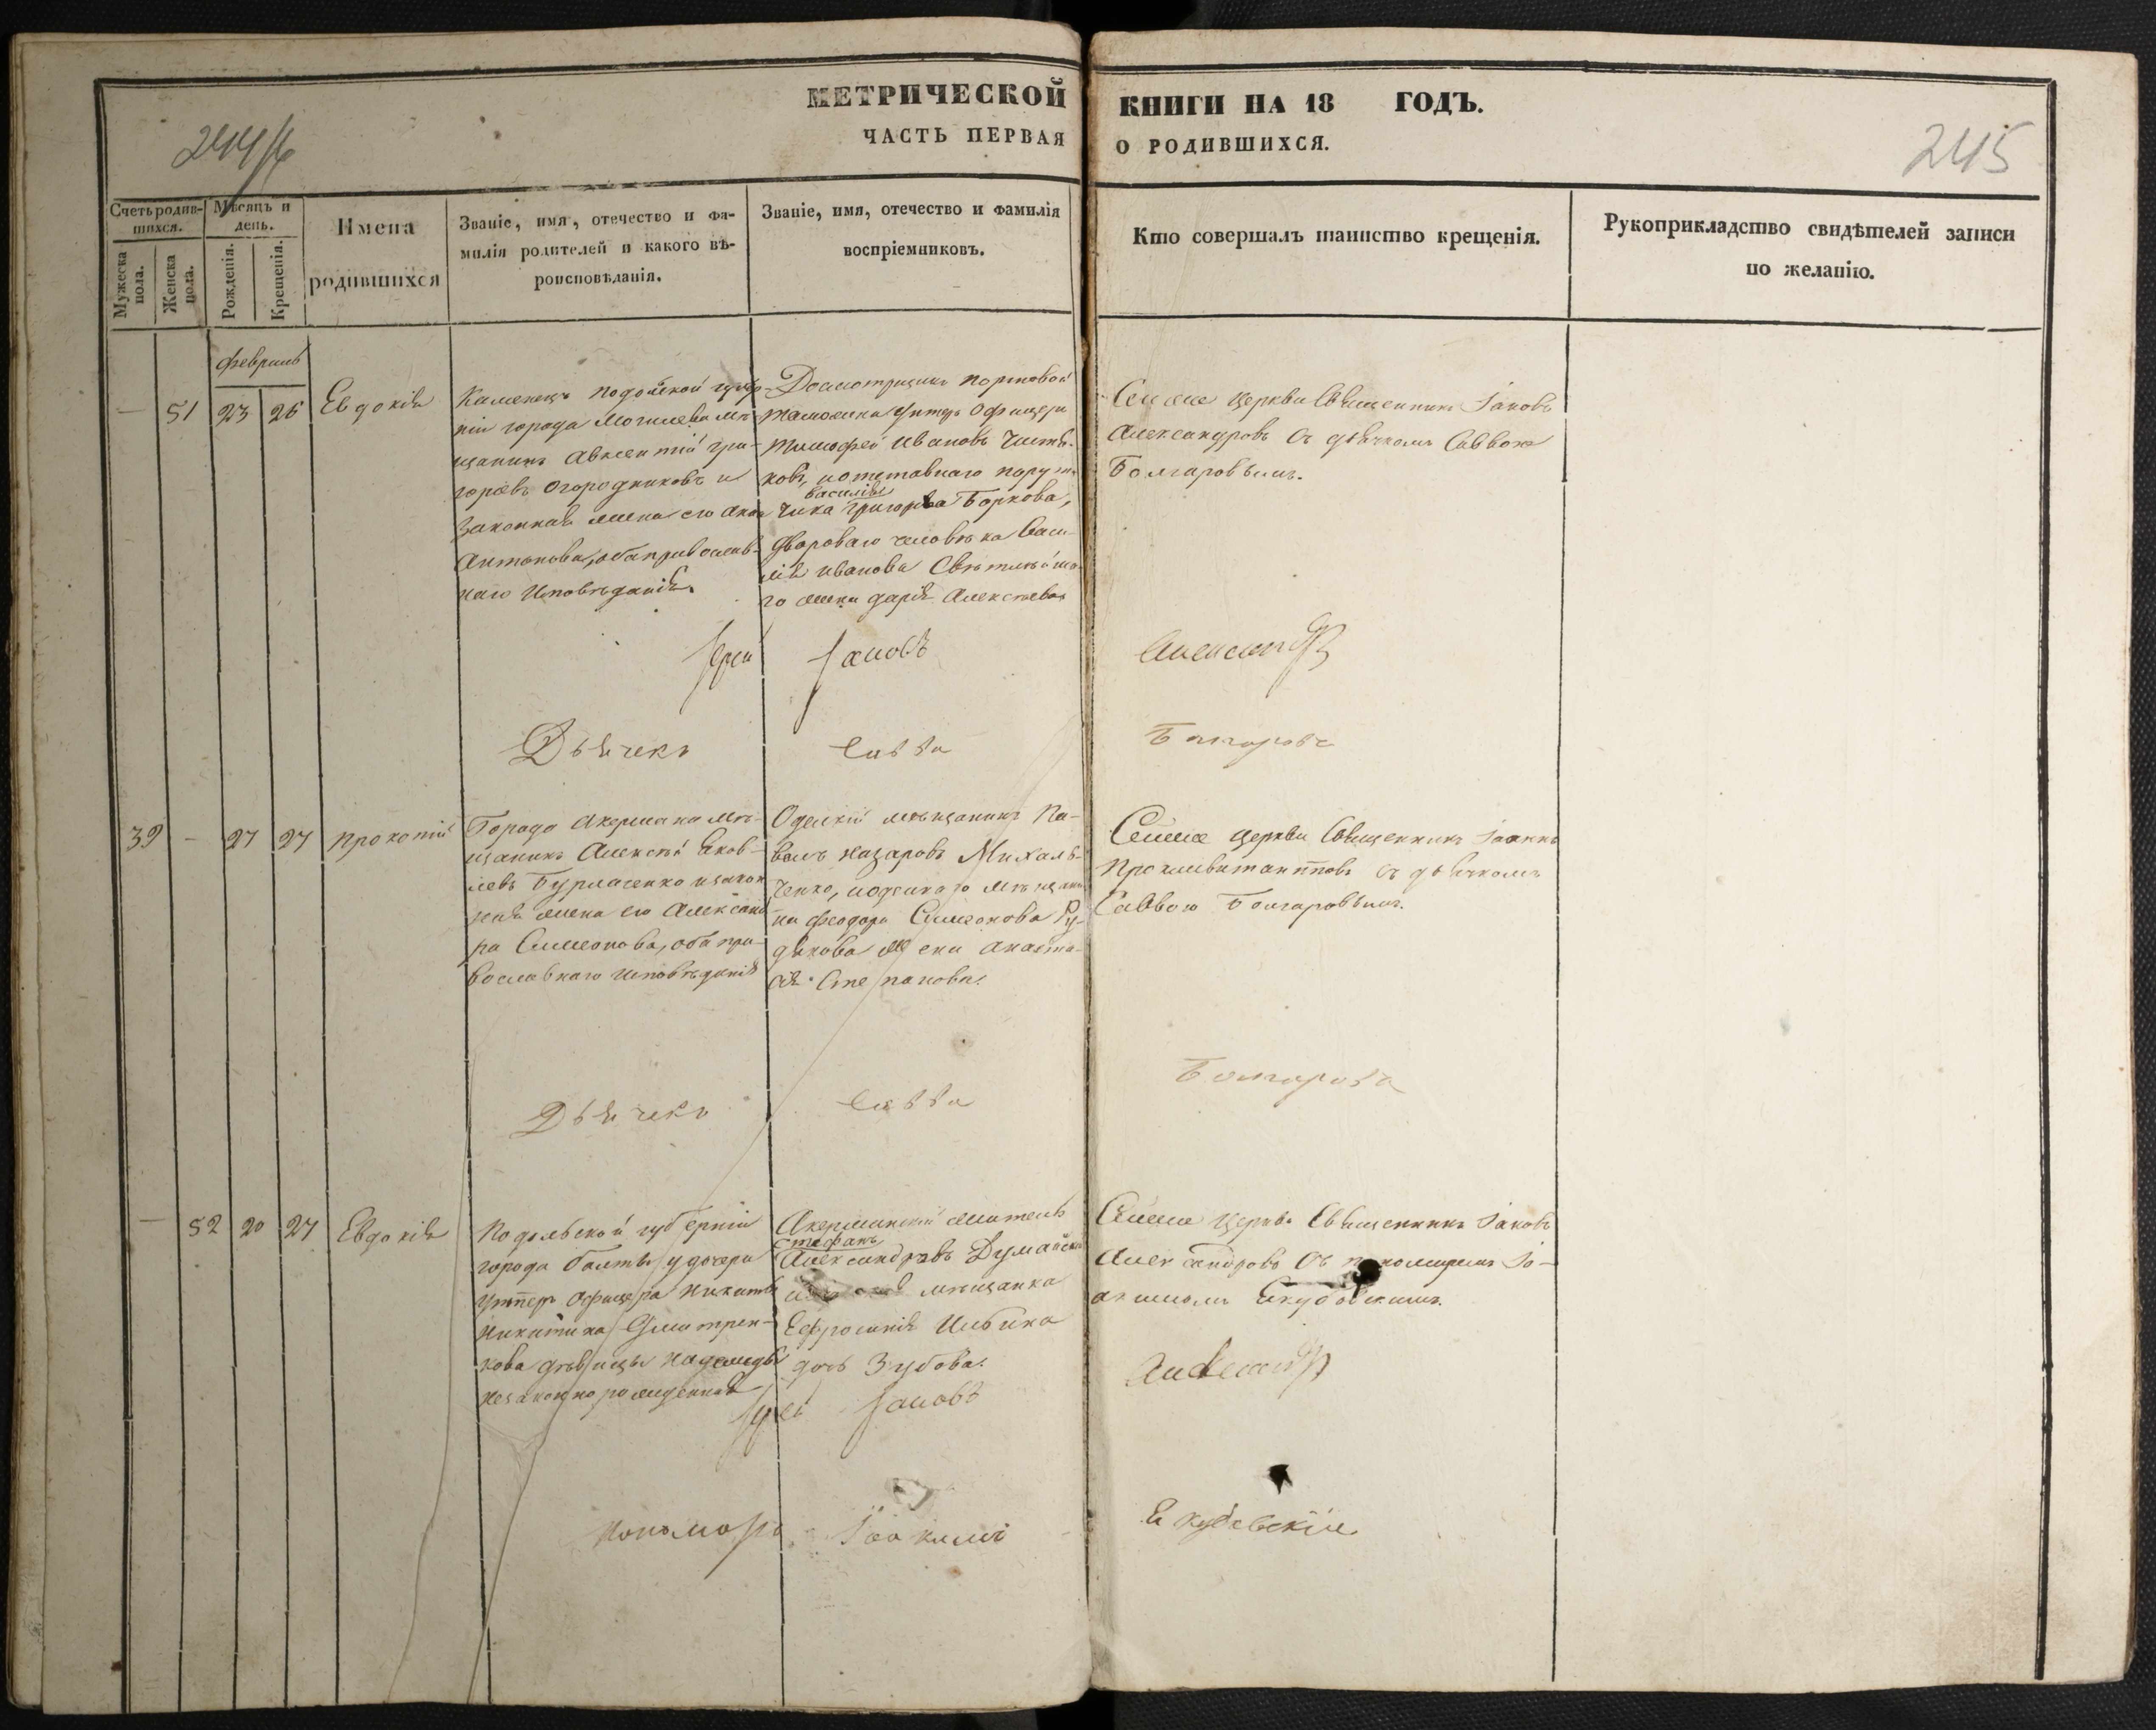 МЕТРИЧЕСКОЙ КНИГИ НА 18 ГОДЪ.
ЧАСТЬ ПЕРВАЯ О РОДИВШИХСЯ.
245
Счетъ родив-
шихся.
Мужеска пола.
Женска пола.
Мѣсяцъ и
день.
Рожденія.
Крещенія.
Имена
родившихся
Званіе, имя, отечество и фа-
милія родителей и какого вѣ-
роисповѣданія.
Званіе, имя, отечество и фамилія
воспріемниковъ.
Кто совершалъ таинство крещенія.
Рукоприкладство свидѣтелей записи
по желанію.
февраль
— 51 23 26 Евдокія
Каменецъ Подольской губер-
ніи города Могилева мѣ-
щанинъ Авксентій Гри-
горіевъ Огородниковъ и
законная жена его
Антонова, оба православ-
наго исповѣданія.
Досмотрщикъ портовой
таможни унтеръ офицеръ
Тимофей Ивановъ
ковъ, и отставнаго пору-
василія
чика Григорьева Боркова,
двороваго человѣка Васи-
лія Иванова
го жена Дарія Алексѣева
Сей же церкви Священникъ Іаковъ
Александровъ съ дьячкомъ Саввою
Болгаровымъ.
Іерей Іаковъ Александр
Дьячекъ Савва Болгаровъ
39 — 27 27 Прокопій
Города Акермана мѣ-
щанинъ Алексѣй Яков-
левъ Бурлаченко и закон
ная жена его Александ
ра Симеонова, оба пра-
вославнаго исповѣданія
Одескій мѣщанинъ Па-
велъ Назаровъ Михаль-
ченко, и одескаго мѣщани
на Феодора Симеонова Ру-
дакова жена Анаста-
сія Степанова.
Сей же церкви Священникъ Іоаннъ
съ дьячкомъ
Саввою Болгаровымъ.
Дьячекъ Савва Болгаровъ
— 52 20 27 Евдокія
Подольской губерніи
города Балты у дочери
унтеръ офицера Никиты
Никитина
кова дѣвицы Надежды
незаконнорожденная
Акерманскій житель
Стефанъ
Александровъ
мѣщанка
Ефросинія
дочь Зубова.
Сей же церкви Священникъ Іаковъ
Александровъ съ пономаремъ Іо-
акимомъ Якубовскимъ.
Іерей Іаковъ Александр
Пономарь Іоакимъ Якубовскій